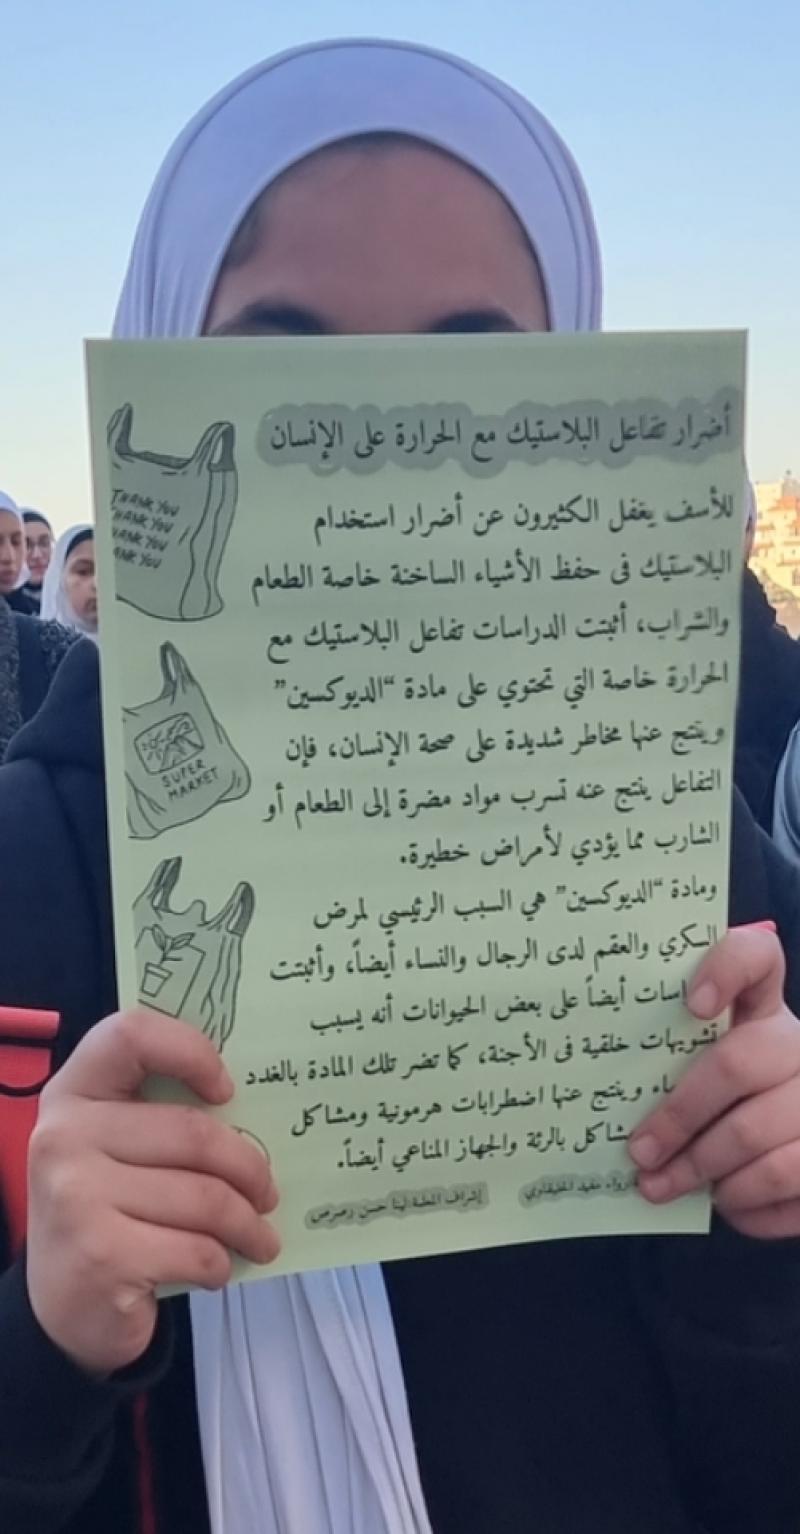 أضرار تفاعل البلاستيك مع الحرارة على الإنسان
للأسف يغفل الكثيرون عن أضرار استخدام
البلاستيك في حفظ الأشياء الساخنة خاصة الطعام
والشراب، أثبتت الدراسات تفاعل البلاستيك مع
الحرارة خاصة التي تحتوي على مادة “الديوكسين”
وينتج عنها مخاطر شديدة على صحة الإنسان، فإن
التفاعل ينتج عنه تسرب مواد مضرة إلى الطعام أو
الشارب مما يؤدي لأمراض خطيرة.
ومادة “الديوكسين” هي السبب الرئيسي لمرض
السكري والعقم لدى الرجال والنساء أيضاً، وأثبتت
أيضاً على بعض الحيوانات أنه يسبب
تشويهات خلقية في الأجنة، كما تضر تلك المادة بالغدد
وينتج عنها اضطرابات هرمونية ومشاكل
مشاكل بالرئة والجهاز المناعي أيضاً.
إشراف المعلمة لينا حسن رصرص
THANK YOU
THANK YOU
THANK YOU
ANK YOU
SUPER
MARKET